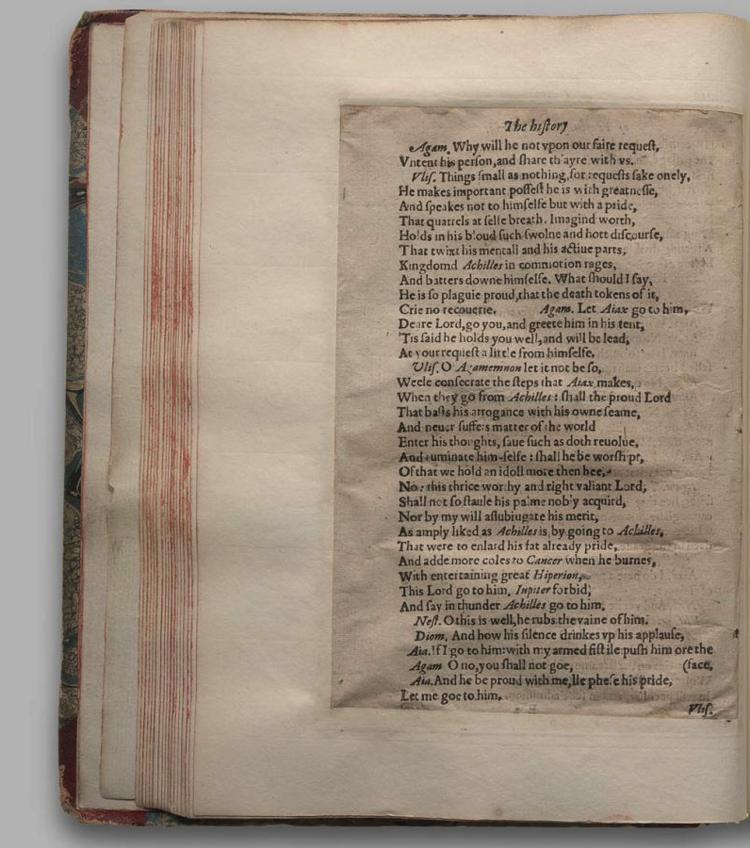 The history
Agam. Why will he not vpon our faire request,
Vntent his person,and share th'ayre with vs.
Vlis. Things small as nothing,for requests sake onely,
He makes important possest he is with greatnesse,
And speakes not to himselfe but with a pride,
That quarrels at selfe breath. Imagind worth,
Holds in his bloud such swolne and hott discourse,
That twixt his mentall and his actiue parts,
Kingdomd Achilles in commotion rages,
And batters downe himselfe. What should I say,
He is so plaguie proud,that the death tokens of it,
Crie no recouerie. Agam. Let Aiax go to him,
Deare Lord,go you,and greete him in his tent,
'Tis said he holds you well,and will be lead,
At your request a little from himselfe.
Vlis. O Agamemnon let it not be so,
Weele consecrate the steps that Aiax makes,
When they go from Achilles: shall the proud Lord
That basts his arrogance with his owne seame,
And neuer suffers matter of the world
Enter his thoughts, saue such as doth reuolue,
And ruminate him-selfe : shall he be worshipt,
Of that we hold an idoll more then hee,
No: this thrice worthy and right valiant Lord,
Shall not so staule his palme nobly acquird,
Nor by my will assubiugate his merit,
As amply liked as Achilles is, by going to Achilles,
That were to enlard his fat already pride,
And adde more coles to Cancer when he burnes,
With entertaining great Hiperion,
This Lord go to him, Iupiter forbid;
And say in thunder Achilles go to him.
Nest. O this is well,he rubs the vaine of him.
Diom. And how his silence drinkes vp his applause,
Aia. If I go to him: with my armed fist ile push him ore the
Agam O no,you shall not goe, (face.
Aia. And he be proud with me,Ile phese his pride,
Let me goe to him.
Vlis.